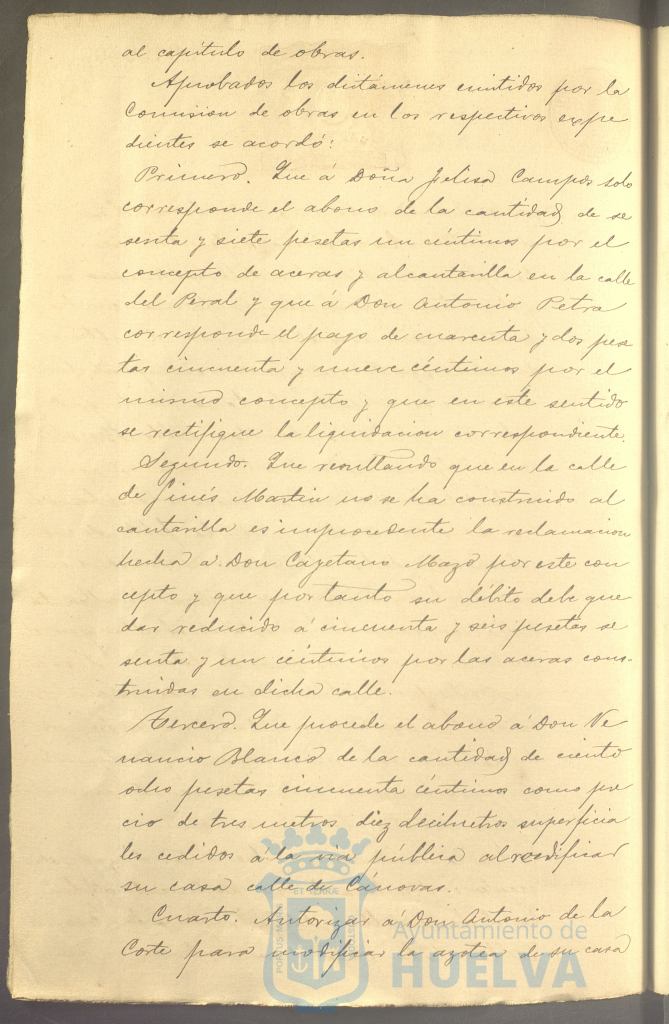 al capitulo de obras.
Aprobados los dictámenes emitidos por la
Comision de obras en los respectivos expe
dientes se acordó:
Primero. Que á Doña Felisa Campos solo
corresponde el abono de la cantidad de se
senta y siete pesetas un céntimos por el
concepto de aceras y alcantarilla en la calle
del Peral y que á Don Antonio Petra
corresponde el pago de cuarenta y dos pese
tas cincuenta y nueve céntimos por el
mismo concepto y que en este sentido
se rectifique la liquidacion correspondiente.
Segundo. Que resultando que en la calle
de Ginés Martin no se ha construido al
cantarilla es improcedente la reclamacion
hecha á Don Cayetano Mazo por este con
cepto y que por tanto su débito debe que
dar reducido á cincuenta y seis pesetas se
senta y un céntimos por las aceras cons-
truidas en dicha calle.
Tercero. Que procede el abono á Don Ve
nancio Blanco de la cantidad de ciento
ocho pesetas cincuenta céntimos como pre
cio de tres metros, diez decímetros superficia
les cedidos á la via pública al reedificar
su casa calle de Cánovas.
Cuarto. Autorizar á Don Antonio de la
Corte para modificar la azotea de su casa
Ayuntamiento de
HUELVA